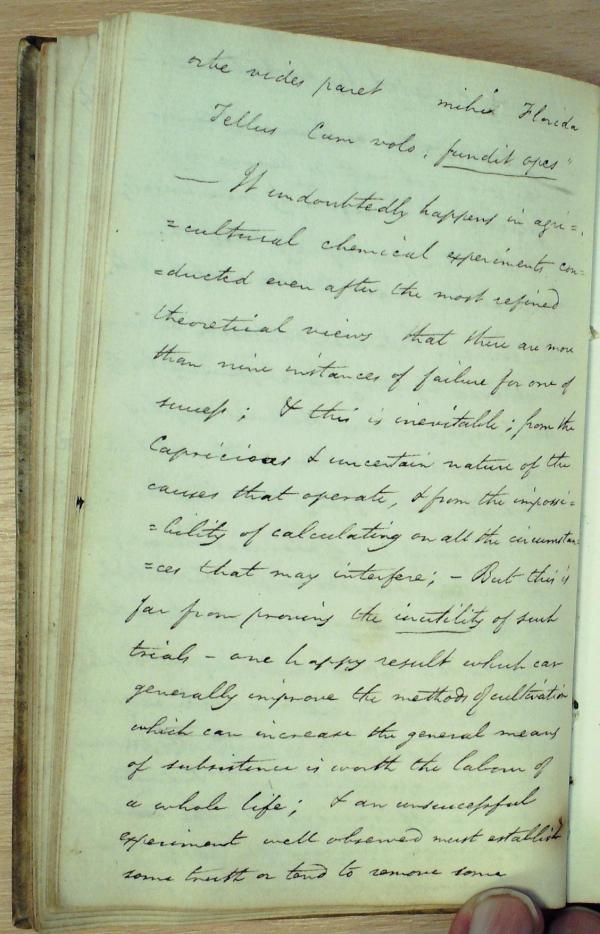 orbe vides paret mihi Florida
Tellus Cum volo, fundit opes"
— It undoubtedly happens in agri=
=cultural chemical experiments con=
=ducted even after the most refined
theoretical views that there are more
than nine instances of failure for one of
success; & this is inevitable; from the
Capricious & uncertain nature of the
causes that operate, & from the impossi=
=bility of calculating on all the circumstan=
=ces that may interfere; – But this is
far from proving the inutility of such
trials – one happy result which can
generally improve the methods of cultivation
which can increase the general means
of subsistence is worth the labour of
a whole life; & an unsuccessful
experiment well observed must establish
some truth or tend to remove some